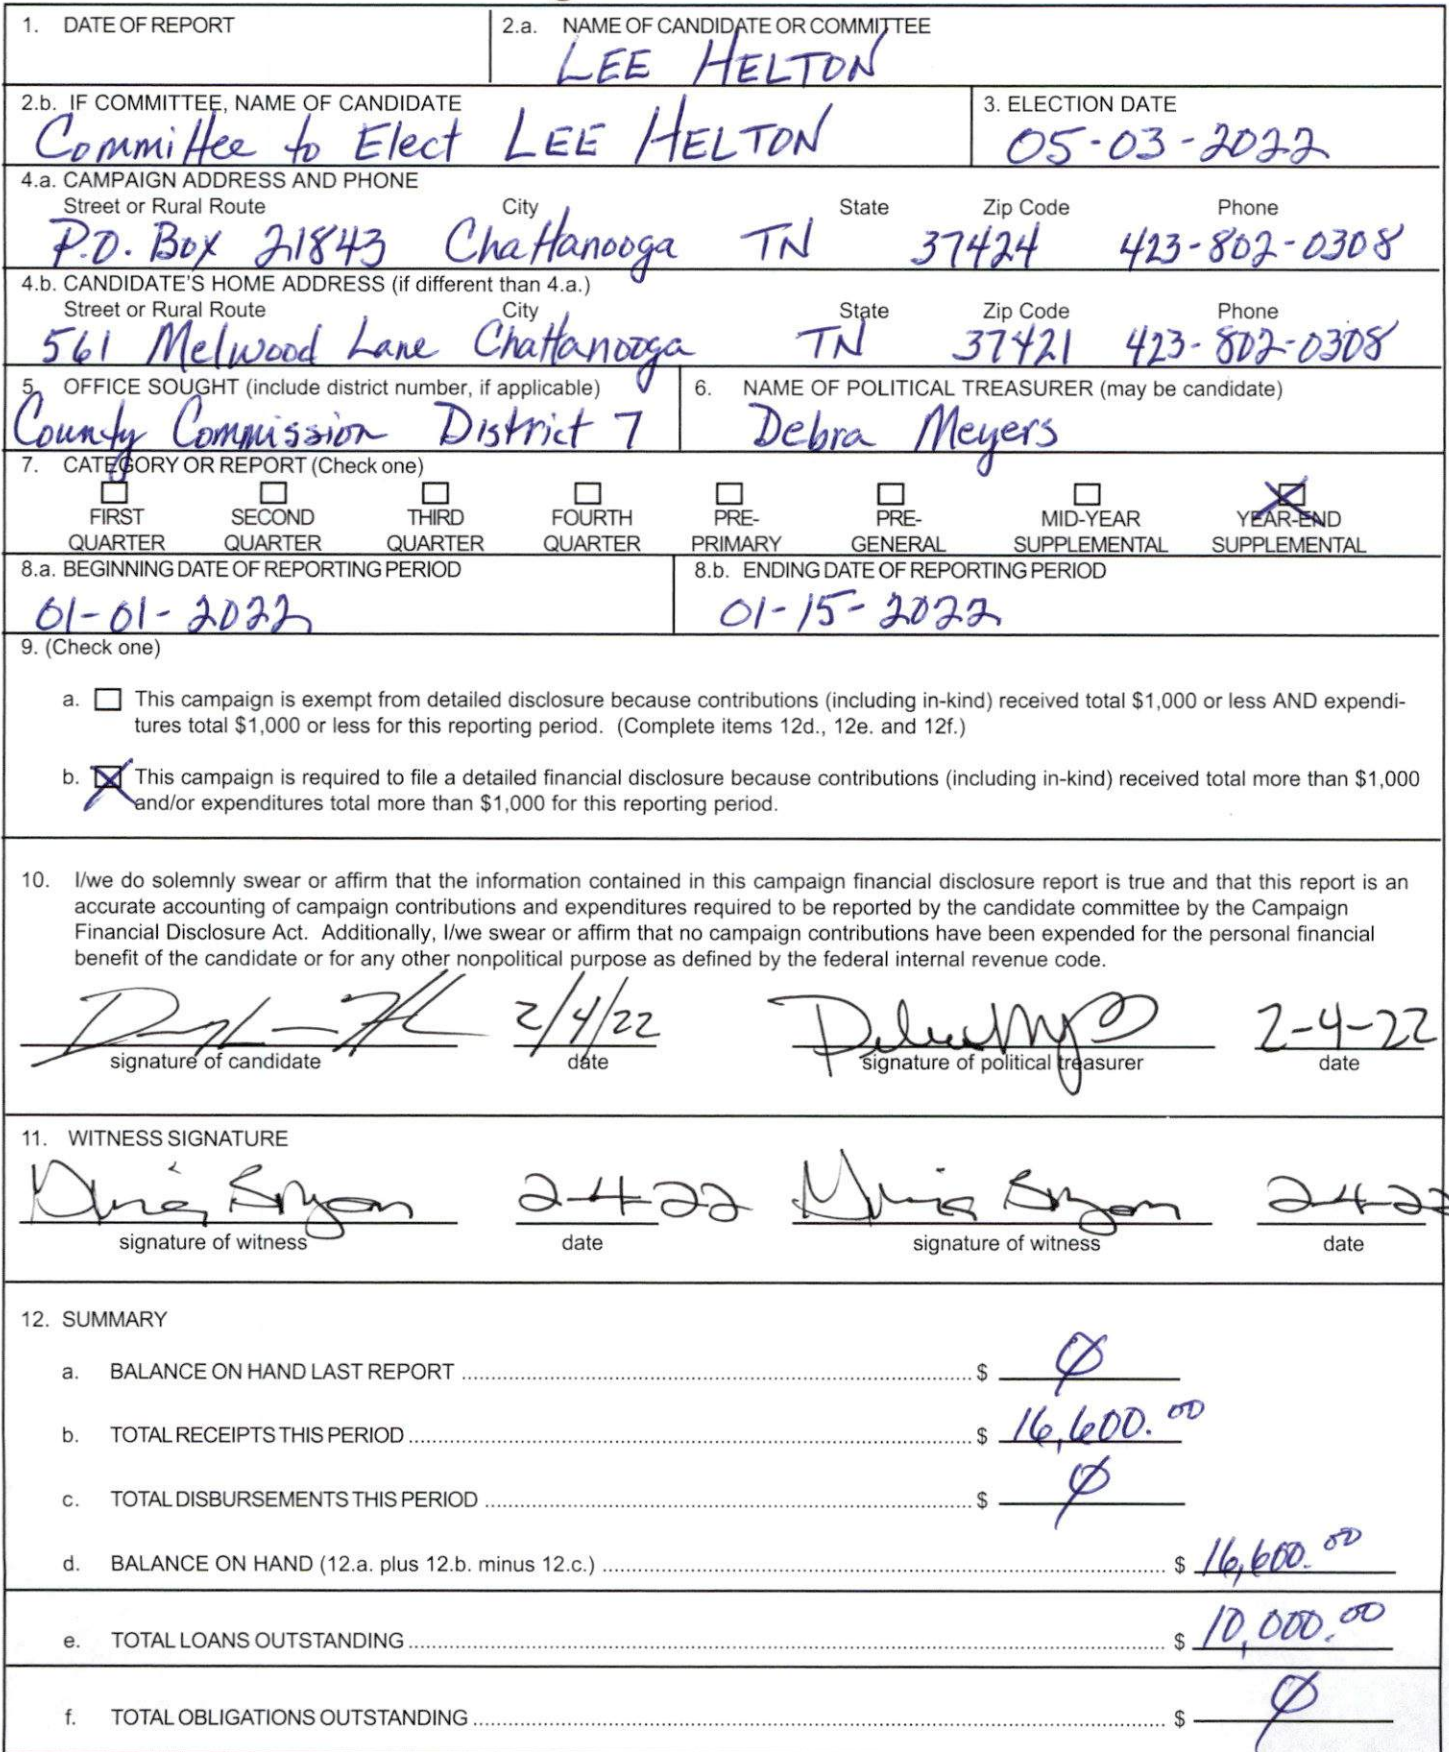 1. DATE OF REPORT
2.a. NAME OF CANDIDATE OR COMMITTEE
LEE HELTON
2.b. IF COMMITTEE, NAME OF CANDIDATE
Committee to Elect LEE HELTON
3. ELECTION DATE
05-03-2022
4.a. CAMPAIGN ADDRESS AND PHONE
Street or Rural Route City State Zip Code Phone
P.O. Box 21843 Chattanooga TN 37424 423-802-0308
4.b. CANDIDATE'S HOME ADDRESS (if different than 4.a.)
Street or Rural Route City State Zip Code Phone
561 Melwood Lane Chattanooga TN 37421 423-802-0308
5. OFFICE SOUGHT (include district number, if applicable)
County Commission District 7
6. NAME OF POLITICAL TREASURER (may be candidate)
Debra Meyers
7. CATEGORY OR REPORT (Check one)
FIRST QUARTER
SECOND QUARTER
THIRD QUARTER
FOURTH QUARTER
PRE-PRIMARY
PRE-GENERAL
MID-YEAR SUPPLEMENTAL
YEAR-END SUPPLEMENTAL
8.a. BEGINNING DATE OF REPORTING PERIOD
01-01-2022
8.b. ENDING DATE OF REPORTING PERIOD
01-15-2022
9. (Check one)
a. This campaign is exempt from detailed disclosure because contributions (including in-kind) received total $1,000 or less AND expendi-
tures total $1,000 or less for this reporting period. (Complete items 12d., 12e. and 12f.)
b. This campaign is required to file a detailed financial disclosure because contributions (including in-kind) received total more than $1,000
and/or expenditures total more than $1,000 for this reporting period.
10. I/we do solemnly swear or affirm that the information contained in this campaign financial disclosure report is true and that this report is an
accurate accounting of campaign contributions and expenditures required to be reported by the candidate committee by the Campaign
Financial Disclosure Act. Additionally, I/we swear or affirm that no campaign contributions have been expended for the personal financial
benefit of the candidate or for any other nonpolitical purpose as defined by the federal internal revenue code.
2/4/22 2-4-22
signature of candidate date signature of political treasurer date
11. WITNESS SIGNATURE
Bryan 2-4-22 Bryan 2-4-22
signature of witness date signature of witness date
12. SUMMARY
a. BALANCE ON HAND LAST REPORT $ Ø
b. TOTAL RECEIPTS THIS PERIOD $ 16,600.00
c. TOTAL DISBURSEMENTS THIS PERIOD $ Ø
d. BALANCE ON HAND (12.a. plus 12.b. minus 12.c.) $ 16,600.00
e. TOTAL LOANS OUTSTANDING $ 10,000.00
f. TOTAL OBLIGATIONS OUTSTANDING $ Ø